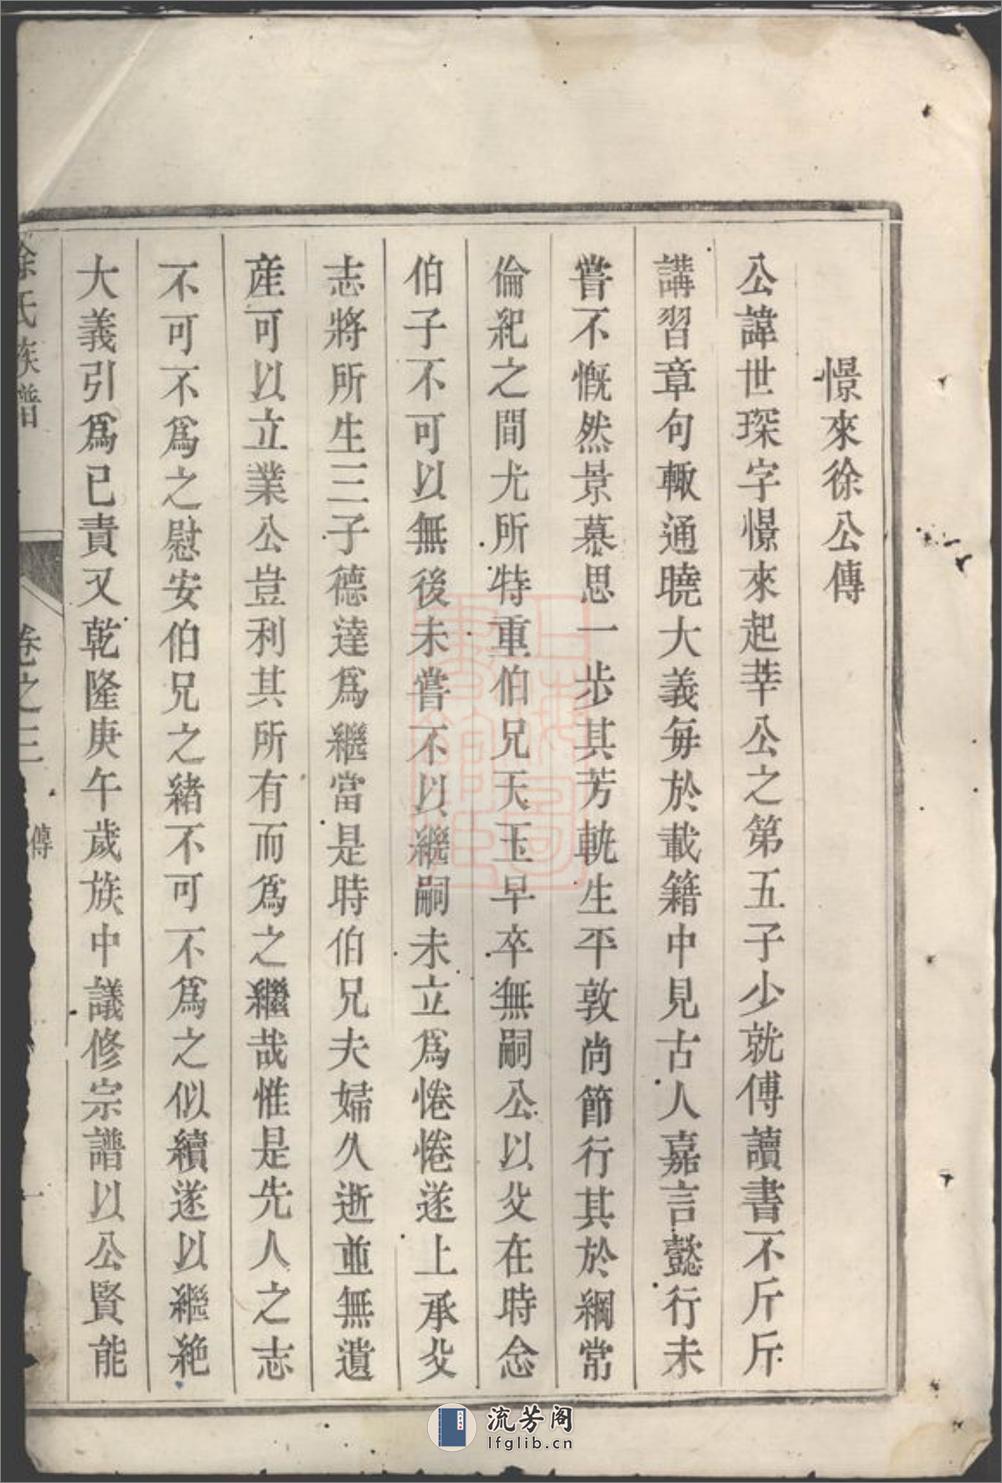 憬來徐公傳
公諱世琛字憬來起莘公之第五子少就傅讀書不斤斤
講習章句輙通曉大義每於載籍中見古人嘉言懿行未
嘗不慨然景慕思一步其芳軌生平敦尚節行其於綱常
倫紀之間尤所特重伯兄天玉早卒無嗣公以父在時念
伯子不可以無後未嘗不以繼嗣未立爲惓惓遂上承父
志將所生三子德達爲繼當是時伯兄夫婦久逝並無遺
産可以立業公豈利其所有而爲之繼哉惟是先人之志
不可不爲之慰安伯兄之緒不可不爲之似續遂以繼絶
大義引爲已責又乾隆庚午歲族中議修宗譜以公賢能
徐氏族譜
卷之三
傳
一
流芳阁
lfglib.cn